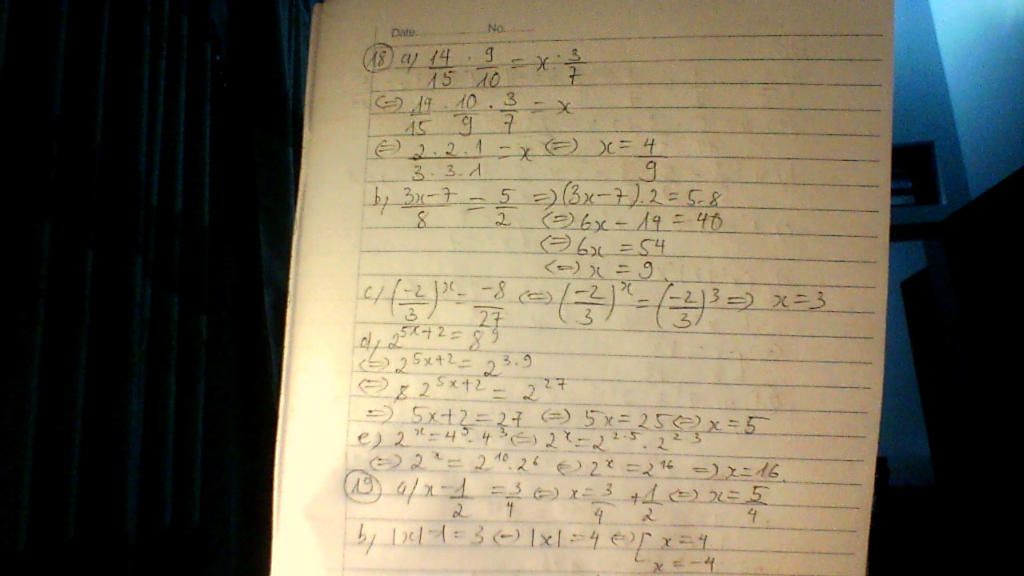 Date. No.
18 a) 14/15 : 9/10 = x : 3/7
<=> 14/15 . 10/9 . 3/7 = x
<=> 2.2.1/3.3.1 = x <=> x = 4/9
b) 3x-7/8 = 5/2 => (3x-7).2 = 5.8
<=> 6x - 14 = 40
<=> 6x = 54
<=> x = 9
c) (-2/3)^x = -8/27 <=> (-2/3)^x = (-2/3)^3 => x = 3
d) 2^(5x+2) = 8^9
<=> 2^(5x+2) = 2^(3.9)
<=> 2^(5x+2) = 2^27
=> 5x+2 = 27 <=> 5x = 25 <=> x = 5
e) 2^x = 4^5 . 4^3 <=> 2^x = 2^(2.5) . 2^(2.3)
<=> 2^x = 2^10 . 2^6 <=> 2^x = 2^16 => x = 16.
19 a) x - 1/2 = 3/4 <=> x = 3/4 + 1/2 <=> x = 5/4
b) |x| - 1 = 3 <=> |x| = 4 <=> [ x = 4
x = -4